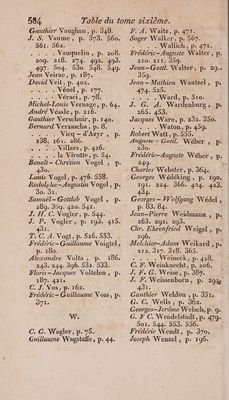 584 Table du tome sixième.
Gauthier Vaughan, p. 348.
J. S. Vaume, p. 373. 360.
561. 562.
. . . . Vauquelin, p. 208.
209. 218. 274. 492. 493.
497. 504. 530. 548. 549.
Jean Veirac, p. 187.
David Veit, p. 402.
. . . . Vénel, p. 177.
. . . . Vérnei, p. 78.
Michel-Louis Vernage, p. 64.
André Vésale, p. 216.
Gauthier Verschuir, p. 140.
Bernard Verzascha, p. 8.
. . . . Vicq-d'Azyr, p.
138. 161. 286.
. . . . Villars, p. 426.
. . . . la Virotte, p. 54.
Benoît-Chrétien Vogel, p.
430.
Louis Vogel, p. 476. 558.
Rodolphe-Augustin Vogel, p.
30. 31.
Samuel-Gottlob Vogel, p.
289. 369. 420. 541.
J. H. C. Vogel, p. 544.
J. P. Vogler, p. 193. 415.
431.
T. C. A. Vogt, p. 526. 553.
Frédéric-Guillaume Voigtel,
p. 180.
Alexandre Volta, p. 186.
243. 244. 396. 532. 533.
Floris-Jacques Voltelen, p.
187. 421.
C. J. Vos, p. 162.
Frédéric-Guillaume Vous, p.
371.
W.
C. G. Wagler, p. 75.
Guillaume Wagstaffe, p. 44.
F. A. Waitz, p. 471.
Sager Walker, p. 567.
. . . . Wallich, p. 471.
Frédéric-Auguste Walter, p.
210. 211. 359.
Jean-Gottlieb Walter, p. 29.
359.
Jean-Mathieu Wantzel, p.
474. 525.
. . . . Ward, p. 510.
J. G. A. Wardenburg, p.
265. 453.
Jacques Ware, p. 231. 350.
. . . . Waton, p. 459.
Robert Watt, p. 555.
Auguste-Gottl. Wéber, p.
330.
Frédéric-Auguste Wéber, p.
249.
Charles Webster, p. 364.
Georges Wédeking, p. 190.
191. 224. 366. 424. 423.
434.
Georges-Wolfgang Wédel,
p. 83. 84.
Jean-Pierre Weidmann, p.
263. 292. 293.
Chr. Ehrenfried Weigel, p.
296.
Melchior-Adam Weikard, p.
212. 317. 318. 365.
. . . . Weineck, p. 428.
C. F. Weinknecht, p. 206.
J. F. G. Weise, p. 387.
J. F. Weissenborn, p. 292.
431.
Gauthier Weldon, p. 351.
G. C. Wells, p. 362.
Georges-Jerôme Welsch, p. 9.
G. F. C. Wendelstadt, p. 479.
501. 544. 553. 556.
Frédéric Wendt, p. 370.
Joseph Wenzel, p. 196.